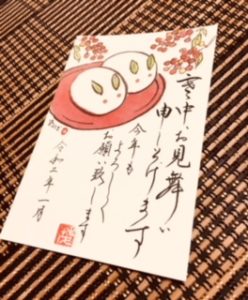 寒中お見舞
申し上げます
今年も
よろしく
お願い致します
令和二年一月